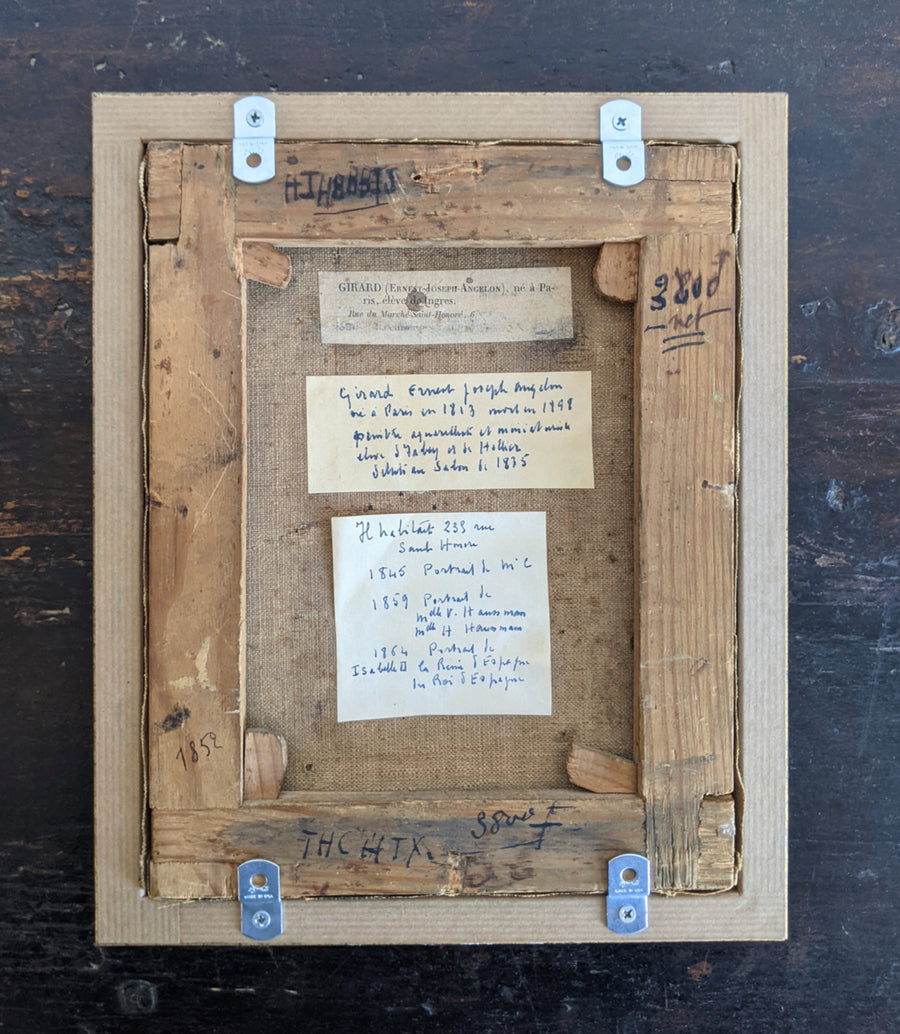 GIRARD (Ernest-Joseph-Angelon), né à Pa-
ris, élève de Ingres.
Rue du Marché-Saint-Honoré, 6
3800
net
Girard Ernest Joseph Angelon
né à Paris en 1813 mort en 1898
peintre aquarelliste et miniaturiste
élève d'Isabey et de Hollier
débute au Salon de 1835
Il habitait 233 rue
Saint Honoré
1845 Portrait de Mr C
1859 Portrait de
Mdlle V. Haussman
Mdlle H Haussman
1864 Portrait de
Isabelle II la Reine d'Espagne
du Roi d'Espagne
1852
THCHTX.
MADE IN USA
MADE IN USA